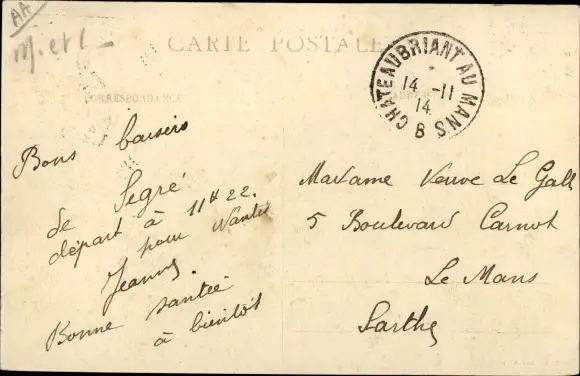 AA
M. et L
CARTE POSTALE
CORRESPONDANCE
CHATEAUBRIANT AU MANS B
14 -11
14
Bons baisers
de Segré
départ à 11h22.
pour Nantes
Jeanne.
Bonne santée
à bientôt
Madame Veuve Le Gall
5 Boulevard Carnot
Le Mans
Sarthe